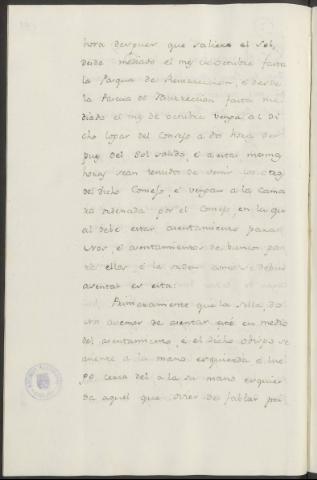 hora despues que saliere el sol,
desde mediado el mes de octubre fasta
la Pasqua de Resurreccion, é desde
la Pascua de Resurreccion fasta me
diado el mes de octubre venga al di
cho logar del Consejo a dos horas des
pues del Sol salido, é a estas mismas
horas sean tenudos de venir los otros
del dicho Consejo é vengan a la cama
ra ordenada por el Consejo, en la qu
al debe estar asentamiento para
Nos, é asentamientos de bancos pa
ra ellos, é la orden como se deben
asentar es esta:
Primeramente que la silla, do
Nos avemos de asentar, esté en medio
del asentamiento, é el dicho obispo se
asiente a la mano esquierda é lue
go cerca del a la su mano esquier
da aquel que oviere de fablar pri